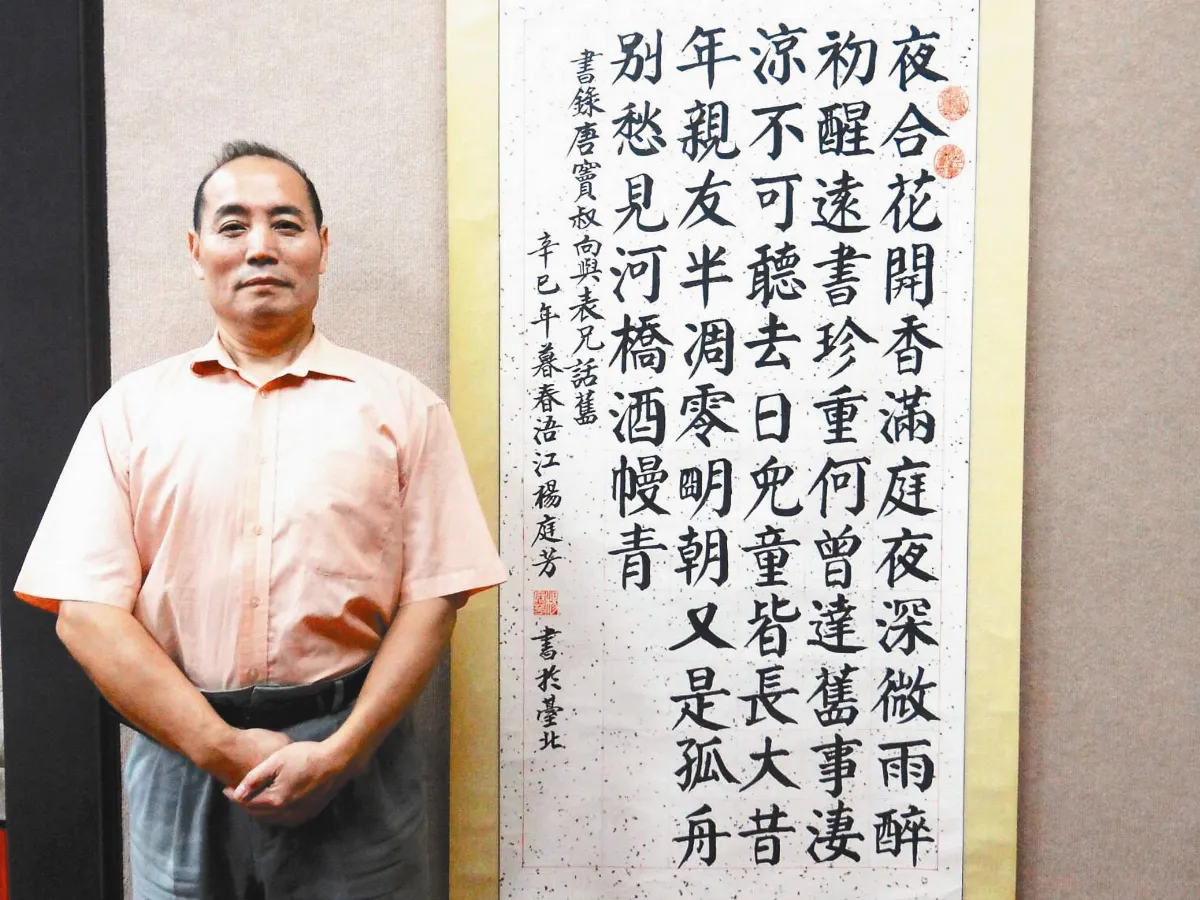 夜合花開香滿庭夜深微雨醉
初醒遠書珍重何曾達舊事淒
涼不可聽去日兒童皆長大昔
年親友半凋零明朝又是孤舟
別愁見河橋酒幔青
書錄唐竇叔向與表兄話舊
辛巳年暮春浯江楊庭芳
書於臺北